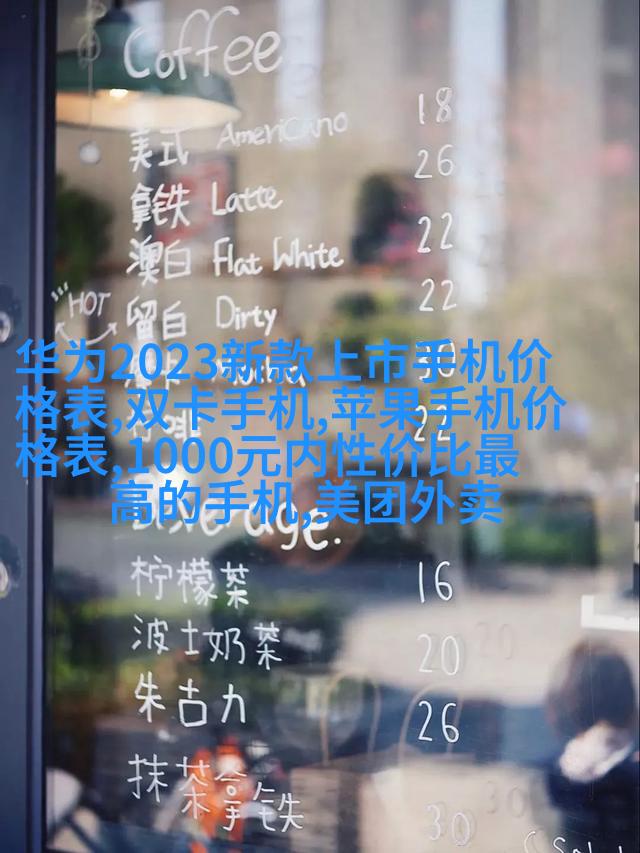 Coffee
美式 Americano 18
拿铁 Latte 26
澳白 Flat White 22
HOT
留白 Dirty 22
华为2023新款上市手机价
30
格表,双卡手机,苹果手机价
22
格表,1000元内性价比最
高的手机,美团外卖
柠檬茶 16
波士奶茶 20
朱古力 26
抹茶拿铁 30